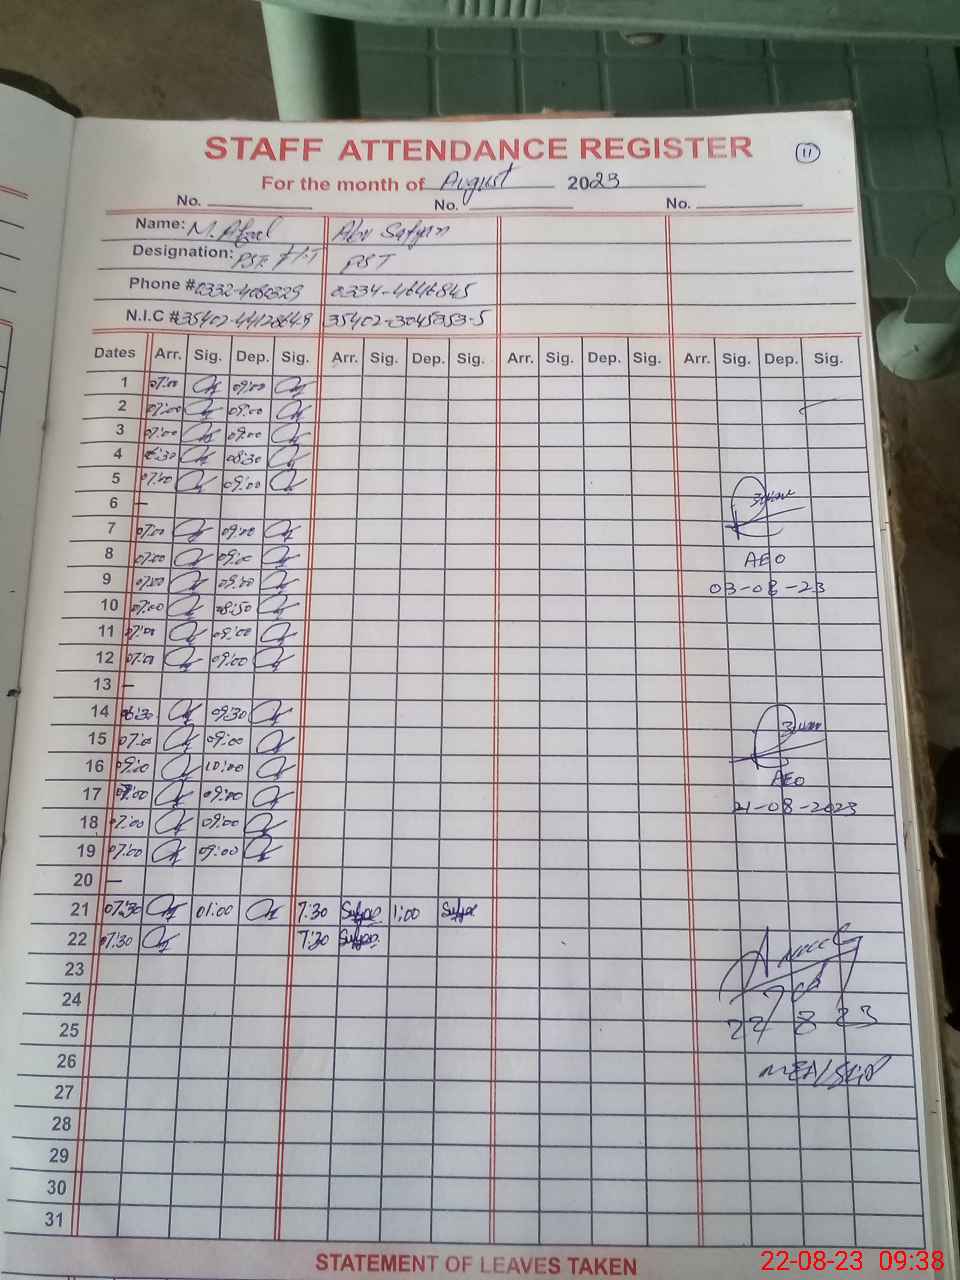 STAFF ATTENDANCE REGISTER 11
For the month of August 2023
No. No. No.
Name: M. Afzal Abu Safyan
Designation: PST H.T PST
Phone # 0332-4080329 0334-4646845
N.I.C # 35402-4412864-9 35402-3045353-5
Dates Arr. Sig. Dep. Sig. Arr. Sig. Dep. Sig. Arr. Sig. Dep. Sig. Arr. Sig. Dep. Sig.
1 07:00 09:00
2 07:00 09:00
3 07:00 09:00
4 06:30 08:30
5 07:00 09:00
6 —
7 07:00 09:00
8 07:00 09:00
AEO
9 07:00 09:00
03-08-23
10 07:00 08:50
11 07:00 09:00
12 07:00 09:00
13 —
14 06:30 09:30
15 07:00 09:00
16 09:00 10:00
AEO
17 07:00 09:00
21-08-2023
18 07:00 09:00
19 07:00 09:00
20 —
21 07:30 01:00 7:30 1:00
22 07:30 7:30
23
24
25
22 8 23
26
MEA/
27
28
29
30
31
STATEMENT OF LEAVES TAKEN
22-08-23 09:38